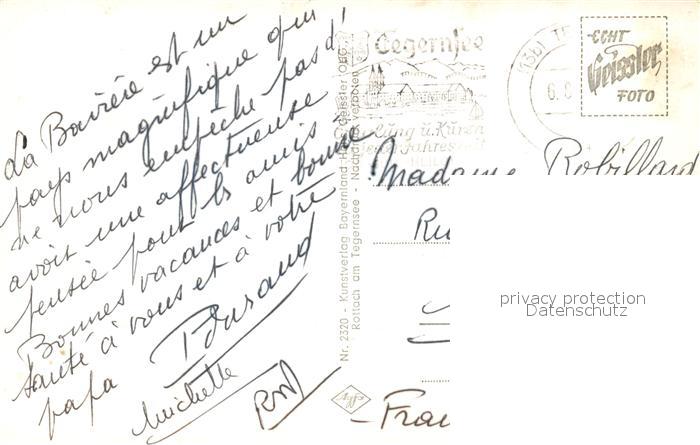 La Bavière est un
pays magnifique qui
ne nous empêche pas d'
avoir une affectueuse
pensée pour les amis
Bonnes vacances et bonne
santé à vous et à votre
papa
Durand
Michelle
Nr. 2320 - Kunstverlag Bayernland Hans Geissler OHG.
Rottach am Tegernsee - Nachdruck verboten
Agfa
Tegernsee
Erholung u. Kuren
jeder Jahreszeit
ECHT
Geissler
FOTO
Madame Robillard
Ru
privacy protection
Datenschutz
Fran